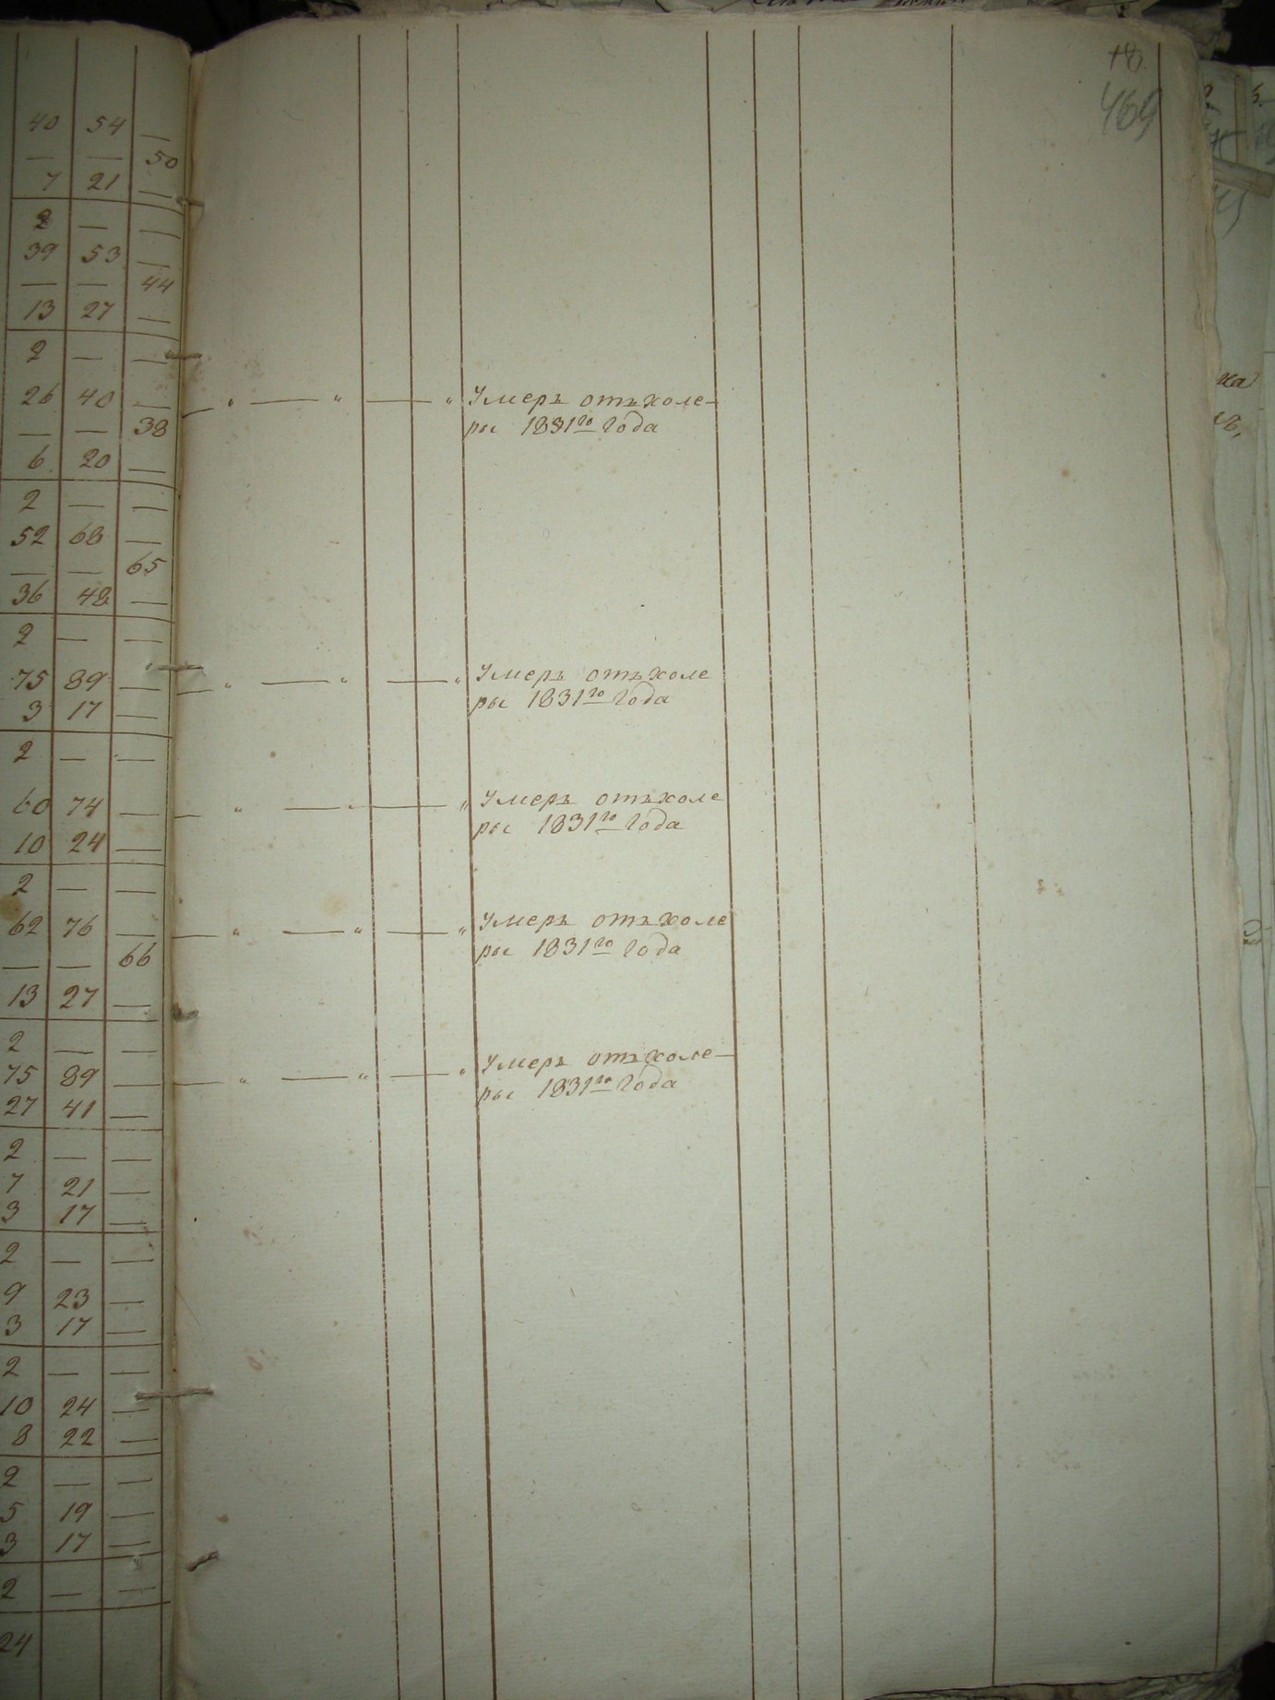 469
40 54 —
— — 50
7 21 —
2 — —
39 53 —
— — 44
13 27 —
2 — —
26 40 —
— — 38
6 20 —
2 — —
52 68 —
— — 65
36 48 —
2 — —
75 89 —
3 17 —
2 — —
60 74 —
10 24 —
2 — —
62 76 —
— — 66
13 27 —
2 — —
75 89 —
27 41 —
2 — —
7 21 —
3 17 —
2 — —
9 23 —
3 17 —
2 — —
10 24 —
8 22 —
2 — —
5 19 —
3 17 —
2 — —
24
Умеръ отъ холе-
ры 1831го года
Умеръ отъ холе
ры 1831го года
Умеръ отъ холе
ры 1831го года
Умеръ отъ холе
ры 1831го года
Умеръ отъ холе-
ры 1831го года